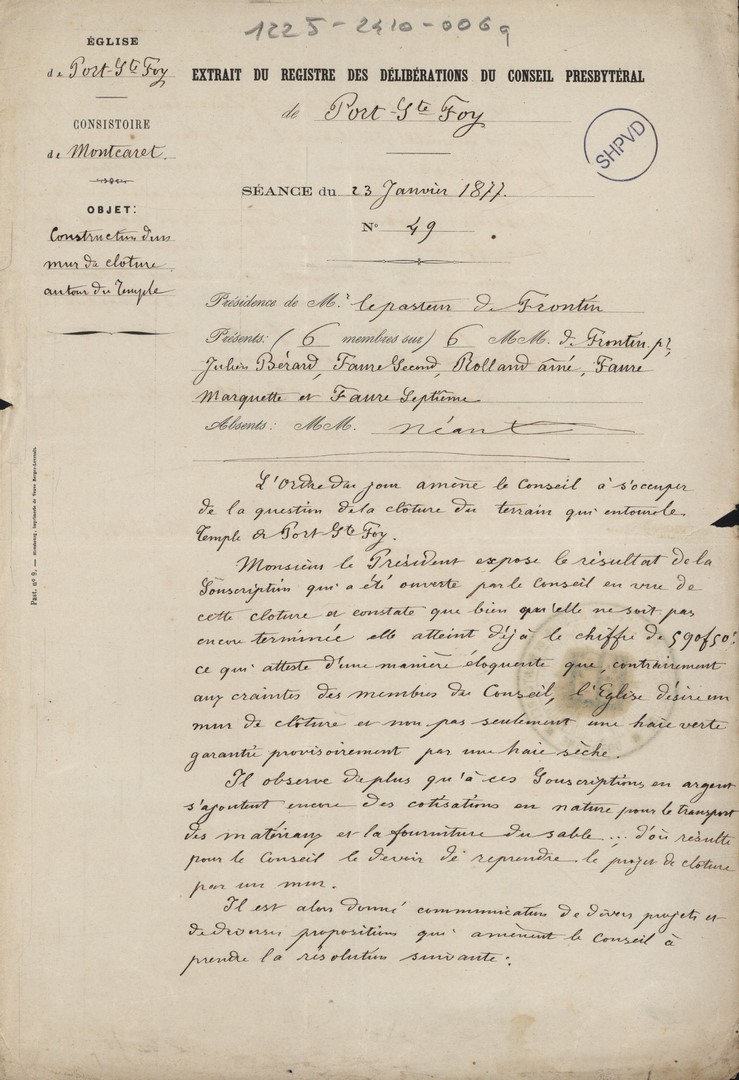 1225-2410-006a
ÉGLISE
de Port-Ste Foy
CONSISTOIRE
de Montcaret.
OBJET:
Construction d'un
mur de cloture
autour du Temple
EXTRAIT DU REGISTRE DES DÉLIBÉRATIONS DU CONSEIL PRESBYTÉRAL
de Port-Ste Foy
SHPVD
SÉANCE du 23 Janvier 1877.
N° 49
Présidence de M.r le pasteur de Frontin
Présents: (6 membres sur) 6 MM. de Frontin, pr,
Julien Bérard, Faure Second, Rolland ainé, Faure
Marquette et Faure Septième
Absents: MM. néant
L'Ordre du jour amène le Conseil à s'occuper
de la question de la clôture du terrain qui entoure le
Temple de Port-Ste Foy.
Monsieur le Président expose le résultat de la
Souscription qui a été ouverte par le Conseil en vue de
cette cloture et constate que bien qu'elle ne soit pas
encore terminée elle atteint déjà le chiffre de 590f50c
ce qui atteste d'une manière éloquente que, contrairement
aux craintes des membres du Conseil, l'Eglise désire un
mur de clôture et non pas seulement une haie verte
garantie provisoirement par une haie sèche.
Il observe de plus qu'à ces Souscriptions en argent
s'ajoutent encore des cotisations en nature pour le transport
des matériaux et la fourniture du sable... d'où résulte
pour le Conseil le devoir de reprendre le projet de cloture
par un mur.
Il est alors donné communication de divers projets et
de diverses propositions qui amènent le Conseil à
prendre la résolution suivante:
Past. n° 9. — Strasbourg, imprimerie de Veuve Berger-Levrault.